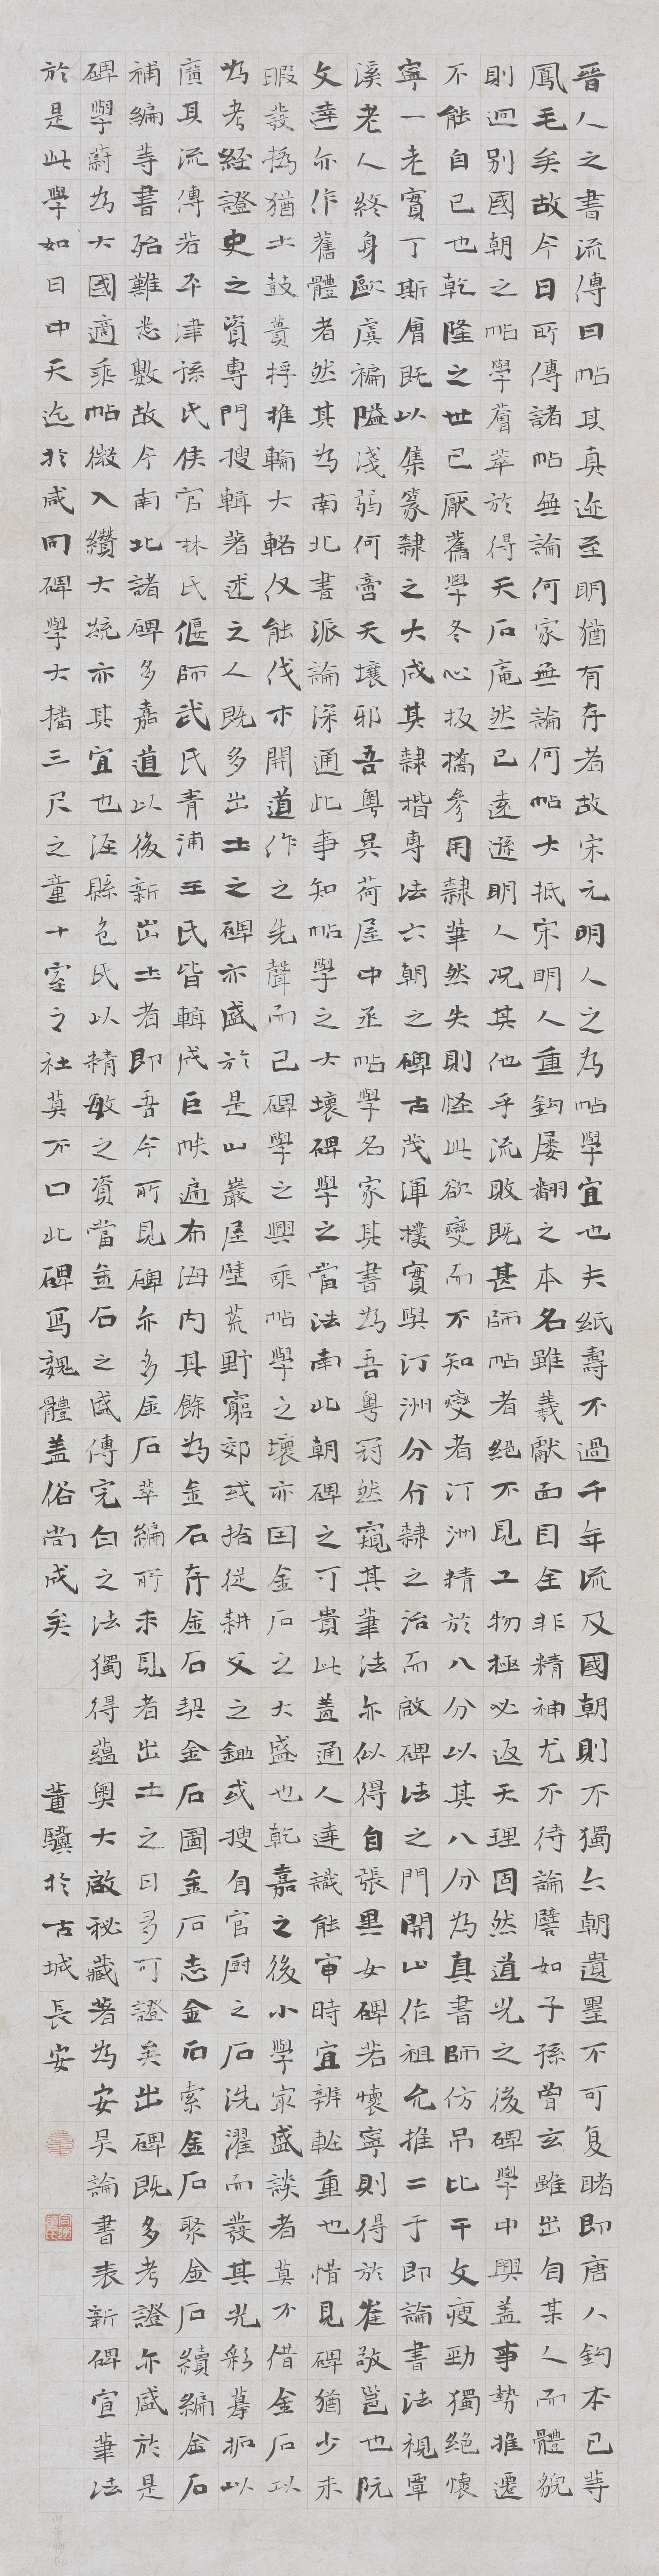 晉人之書流傳曰帖其真迹至明猶有存者故宋元明人之為帖學宜也夫紙壽不過千年流及國朝則不獨六朝遺墨不可复睹即唐人鈎本已等
鳳毛矣故今日所傳諸帖無論何家無論何帖大抵宋明人重鈎屡翻之本名雖羲獻面目全非精神尤不待論譬如子孫曾玄雖出自某人而體貌
則迥別國朝之帖學薈萃於得天石庵然已遠遜明人况其他乎流敗既甚師帖者絕不見工物極必返天理固然道光之後碑學中興蓋事勢推遷
不能自已也乾隆之世已厭舊學冬心板橋參用隸筆然失則怪此欲變而不知變者汀洲精於八分以其八分為真書師仿吊比干文瘦勁獨絕懷
寧一老實丁斯會既以集篆隸之大成其隸楷專法六朝之碑古茂渾樸實與汀洲分分隸之治而啟碑法之門開山作祖允推二于即論書法視覃
溪老人終身歐虞褊隘淺弱何啻天壤邪吾粵吳荷屋中丞帖學名家其書為吾粵冠然窺其筆法亦似得自張黑女碑若懷寧則得於崔敬邕也阮
文達亦作舊體者然其為南北書派論深通此事知帖學之大壞碑學之當法南北朝碑之可貴此蓋通人達識能審時宜辨軽重也惜見碑猶少未
暇發撝猶土鼓蕢桴推輪大輅仅能伐木開道作之先聲而已碑學之興乘帖學之壞亦因金石之大盛也乾嘉之後小學家盛談者莫不借金石以
為考經證史之資專門搜輯著述之人既多出土之碑亦盛於是山巖屋壁荒野窮郊或拾從耕父之鋤或搜自官厨之石洗濯而發其光彩摹拓以
廣其流傳若平津孫氏侯官林氏偃師武氏青浦王氏皆輯成巨帙遍布海内其餘為金石存金石契金石圖金石志金石索金石聚金石續編金石
補編等書殆難悉數故今南北諸碑多嘉道以後新出土者即吾今所見碑亦多金石萃編所未見者出土之日多可證矣出碑既多考證亦盛於是
碑學蔚為大國適乘帖微入纘大統亦其宜也涇縣包氏以精敏之資當金石之盛傳完白之法獨得蘊奥大啟秘藏著為安吳論書表新碑宣筆法
於是此學如日中天迄於咸同碑學大播三尺之童十室之社莫不口此碑寫魏體蓋俗尚成矣 董驥於古城長安